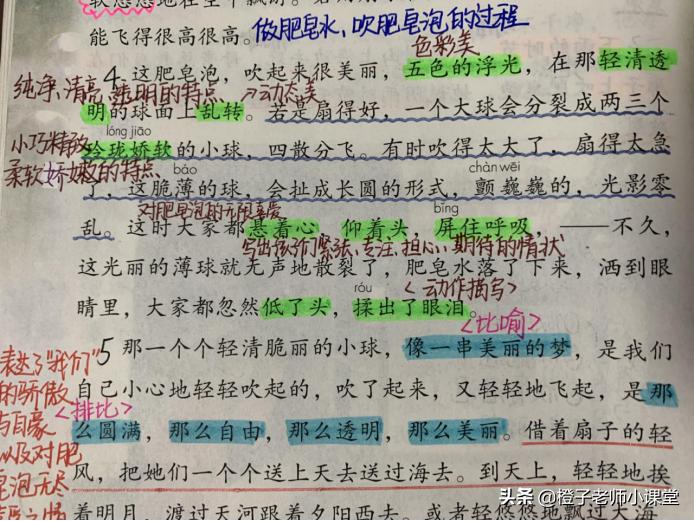 能飞得很高很高。
做肥皂水、吹肥皂泡的过程
色彩美
4 这肥皂泡，吹起来很美丽，五色的浮光，在那轻清透
纯净、清亮、透明的特点 动态美
明的球面上乱转。若是扇得好，一个大球会分裂成两三个
lóng jiāo
小巧精致
玲珑娇软的小球，四散分飞。有时吹得太大了，扇得太急
柔软娇嫩的特点
báo chàn wēi
了，这脆薄的球，会扯成长圆的形式，颤巍巍的，光影零
对肥皂泡的无限喜爱
bǐng
乱。这时大家都悬着心，仰着头，屏住呼吸，——不久，
写出孩子们紧张、专注、担心、期待的情状
这光丽的薄球就无声地散裂了，肥皂水落了下来，洒到眼
róu
<动作描写>
睛里，大家都忽然低了头，揉出了眼泪。
<比喻>
5 那一个个轻清脆丽的小球，像一串美丽的梦，是我们
表达了"我们"
自己小心地轻轻吹起的，吹了起来，又轻轻地飞起，是那
的骄傲
<排比>
与自豪
么圆满，那么自由，那么透明，那么美丽。借着扇子的轻
以及对肥
风，把她们一个个送上天去送过海去。到天上，轻轻地挨
皂泡无尽
着明月，渡过天河跟着夕阳西去。或者轻悠悠地飘过大海
头条 @橙子老师小课堂